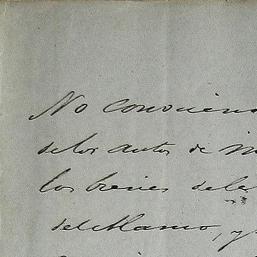 No convinien
delos autos de in
los bienes dela
del Alamo, y